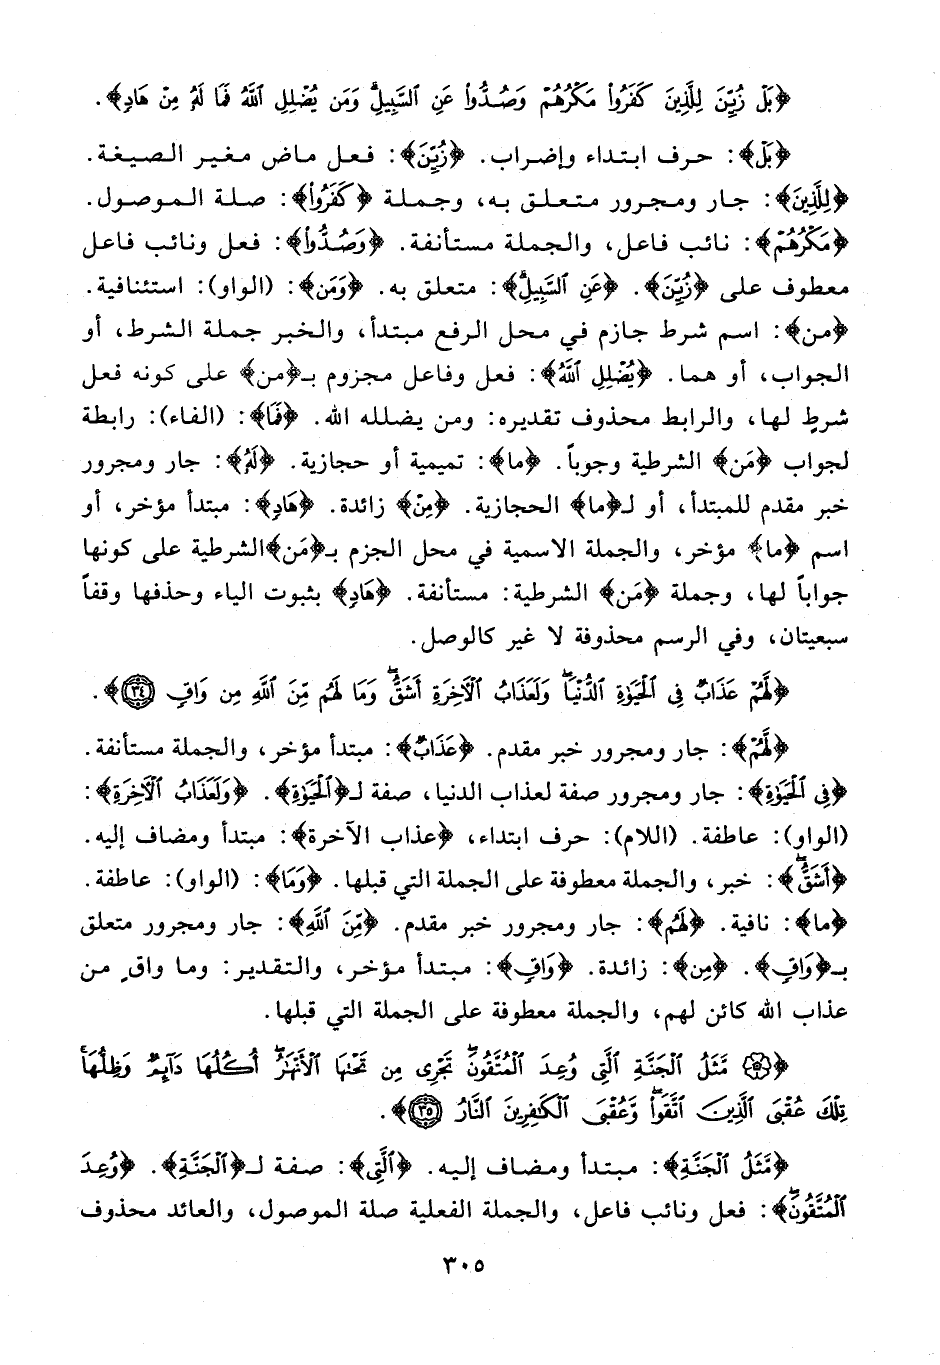 ﴿بَلْ زُيِّنَ لِلَّذِينَ كَفَرُواْ مَكْرُهُمْ وَصُدُّواْ عَنِ ٱلسَّبِيلِۗ وَمَن يُضْلِلِ ٱللَّهُ فَمَا لَهُۥ مِنْ هَادٍ﴾.
﴿بَلْ﴾: حرف ابتداء وإضراب. ﴿زُيِّنَ﴾: فعل ماض مغير الصيغة.
﴿لِلَّذِينَ﴾: جار ومجرور متعلق به، وجملة ﴿كَفَرُواْ﴾: صلة الموصول.
﴿مَكْرُهُمْ﴾: نائب فاعل، والجملة مستأنفة. ﴿وَصُدُّواْ﴾: فعل ونائب فاعل
معطوف على ﴿زُيِّنَ﴾. ﴿عَنِ ٱلسَّبِيلِۗ﴾: متعلق به. ﴿وَمَن﴾: (الواو): استئنافية.
﴿من﴾: اسم شرط جازم في محل الرفع مبتدأ، والخبر جملة الشرط، أو
الجواب، أو هما. ﴿يُضْلِلِ ٱللَّهُ﴾: فعل وفاعل مجزوم بـ﴿من﴾ على كونه فعل
شرطٍ لها، والرابط محذوف تقديره: ومن يضلله الله. ﴿فَمَا﴾: (الفاء): رابطة
لجواب ﴿مَن﴾ الشرطية وجوباً. ﴿ما﴾: تميمية أو حجازية. ﴿لَهُۥ﴾: جار ومجرور
خبر مقدم للمبتدأ، أو لـ﴿ما﴾ الحجازية. ﴿مِنْ﴾ زائدة. ﴿هَادٍ﴾: مبتدأ مؤخر، أو
اسم ﴿ما﴾ مؤخر، والجملة الاسمية في محل الجزم بـ﴿مَن﴾الشرطية على كونها
جواباً لها، وجملة ﴿مَن﴾ الشرطية: مستأنفة. ﴿هَادٍ﴾ بثبوت الياء وحذفها وقفاً
سبعيتان، وفي الرسم محذوفة لا غير كالوصل.
﴿لَّهُمْ عَذَابٌ فِى ٱلْحَيَوٰةِ ٱلدُّنْيَاۖ وَلَعَذَابُ ٱلْأَخِرَةِ أَشَقُّۖ وَمَا لَهُم مِّنَ ٱللَّهِ مِن وَاقٍ ٣٤﴾.
﴿لَّهُمْ﴾: جار ومجرور خبر مقدم. ﴿عَذَابٌ﴾: مبتدأ مؤخر، والجملة مستأنفة.
﴿فِى ٱلْحَيَوٰةِ﴾: جار ومجرور صفة لعذاب الدنيا، صفة لـ﴿ٱلْحَيَوٰةِ﴾. ﴿وَلَعَذَابُ ٱلْأَخِرَةِ﴾:
(الواو): عاطفة. (اللام): حرف ابتداء، ﴿عذاب الآخرة﴾: مبتدأ ومضاف إليه.
﴿أَشَقُّۖ﴾: خبر، والجملة معطوفة على الجملة التي قبلها. ﴿وَمَا﴾: (الواو): عاطفة.
﴿ما﴾: نافية. ﴿لَهُم﴾: جار ومجرور خبر مقدم. ﴿مِّنَ ٱللَّهِ﴾: جار ومجرور متعلق
بـ﴿وَاقٍ﴾. ﴿مِن﴾: زائدة. ﴿وَاقٍ﴾: مبتدأ مؤخر، والتقدير: وما واقٍ من
عذاب الله كائن لهم، والجملة معطوفة على الجملة التي قبلها.
﴿۞ مَّثَلُ ٱلْجَنَّةِ ٱلَّتِى وُعِدَ ٱلْمُتَّقُونَۖ تَجْرِى مِن تَحْتِهَا ٱلْأَنْهَٰرُۖ أُكُلُهَا دَآئِمٌ وَظِلُّهَاۚ
تِلْكَ عُقْبَى ٱلَّذِينَ ٱتَّقَواْۖ وَّعُقْبَى ٱلْكَٰفِرِينَ ٱلنَّارُ ٣٥﴾.
﴿مَّثَلُ ٱلْجَنَّةِ﴾: مبتدأ ومضاف إليه. ﴿ٱلَّتِى﴾: صفة لـ﴿ٱلْجَنَّةِ﴾. ﴿وُعِدَ
ٱلْمُتَّقُونَۖ﴾: فعل ونائب فاعل، والجملة الفعلية صلة الموصول، والعائد محذوف
٣٠٥